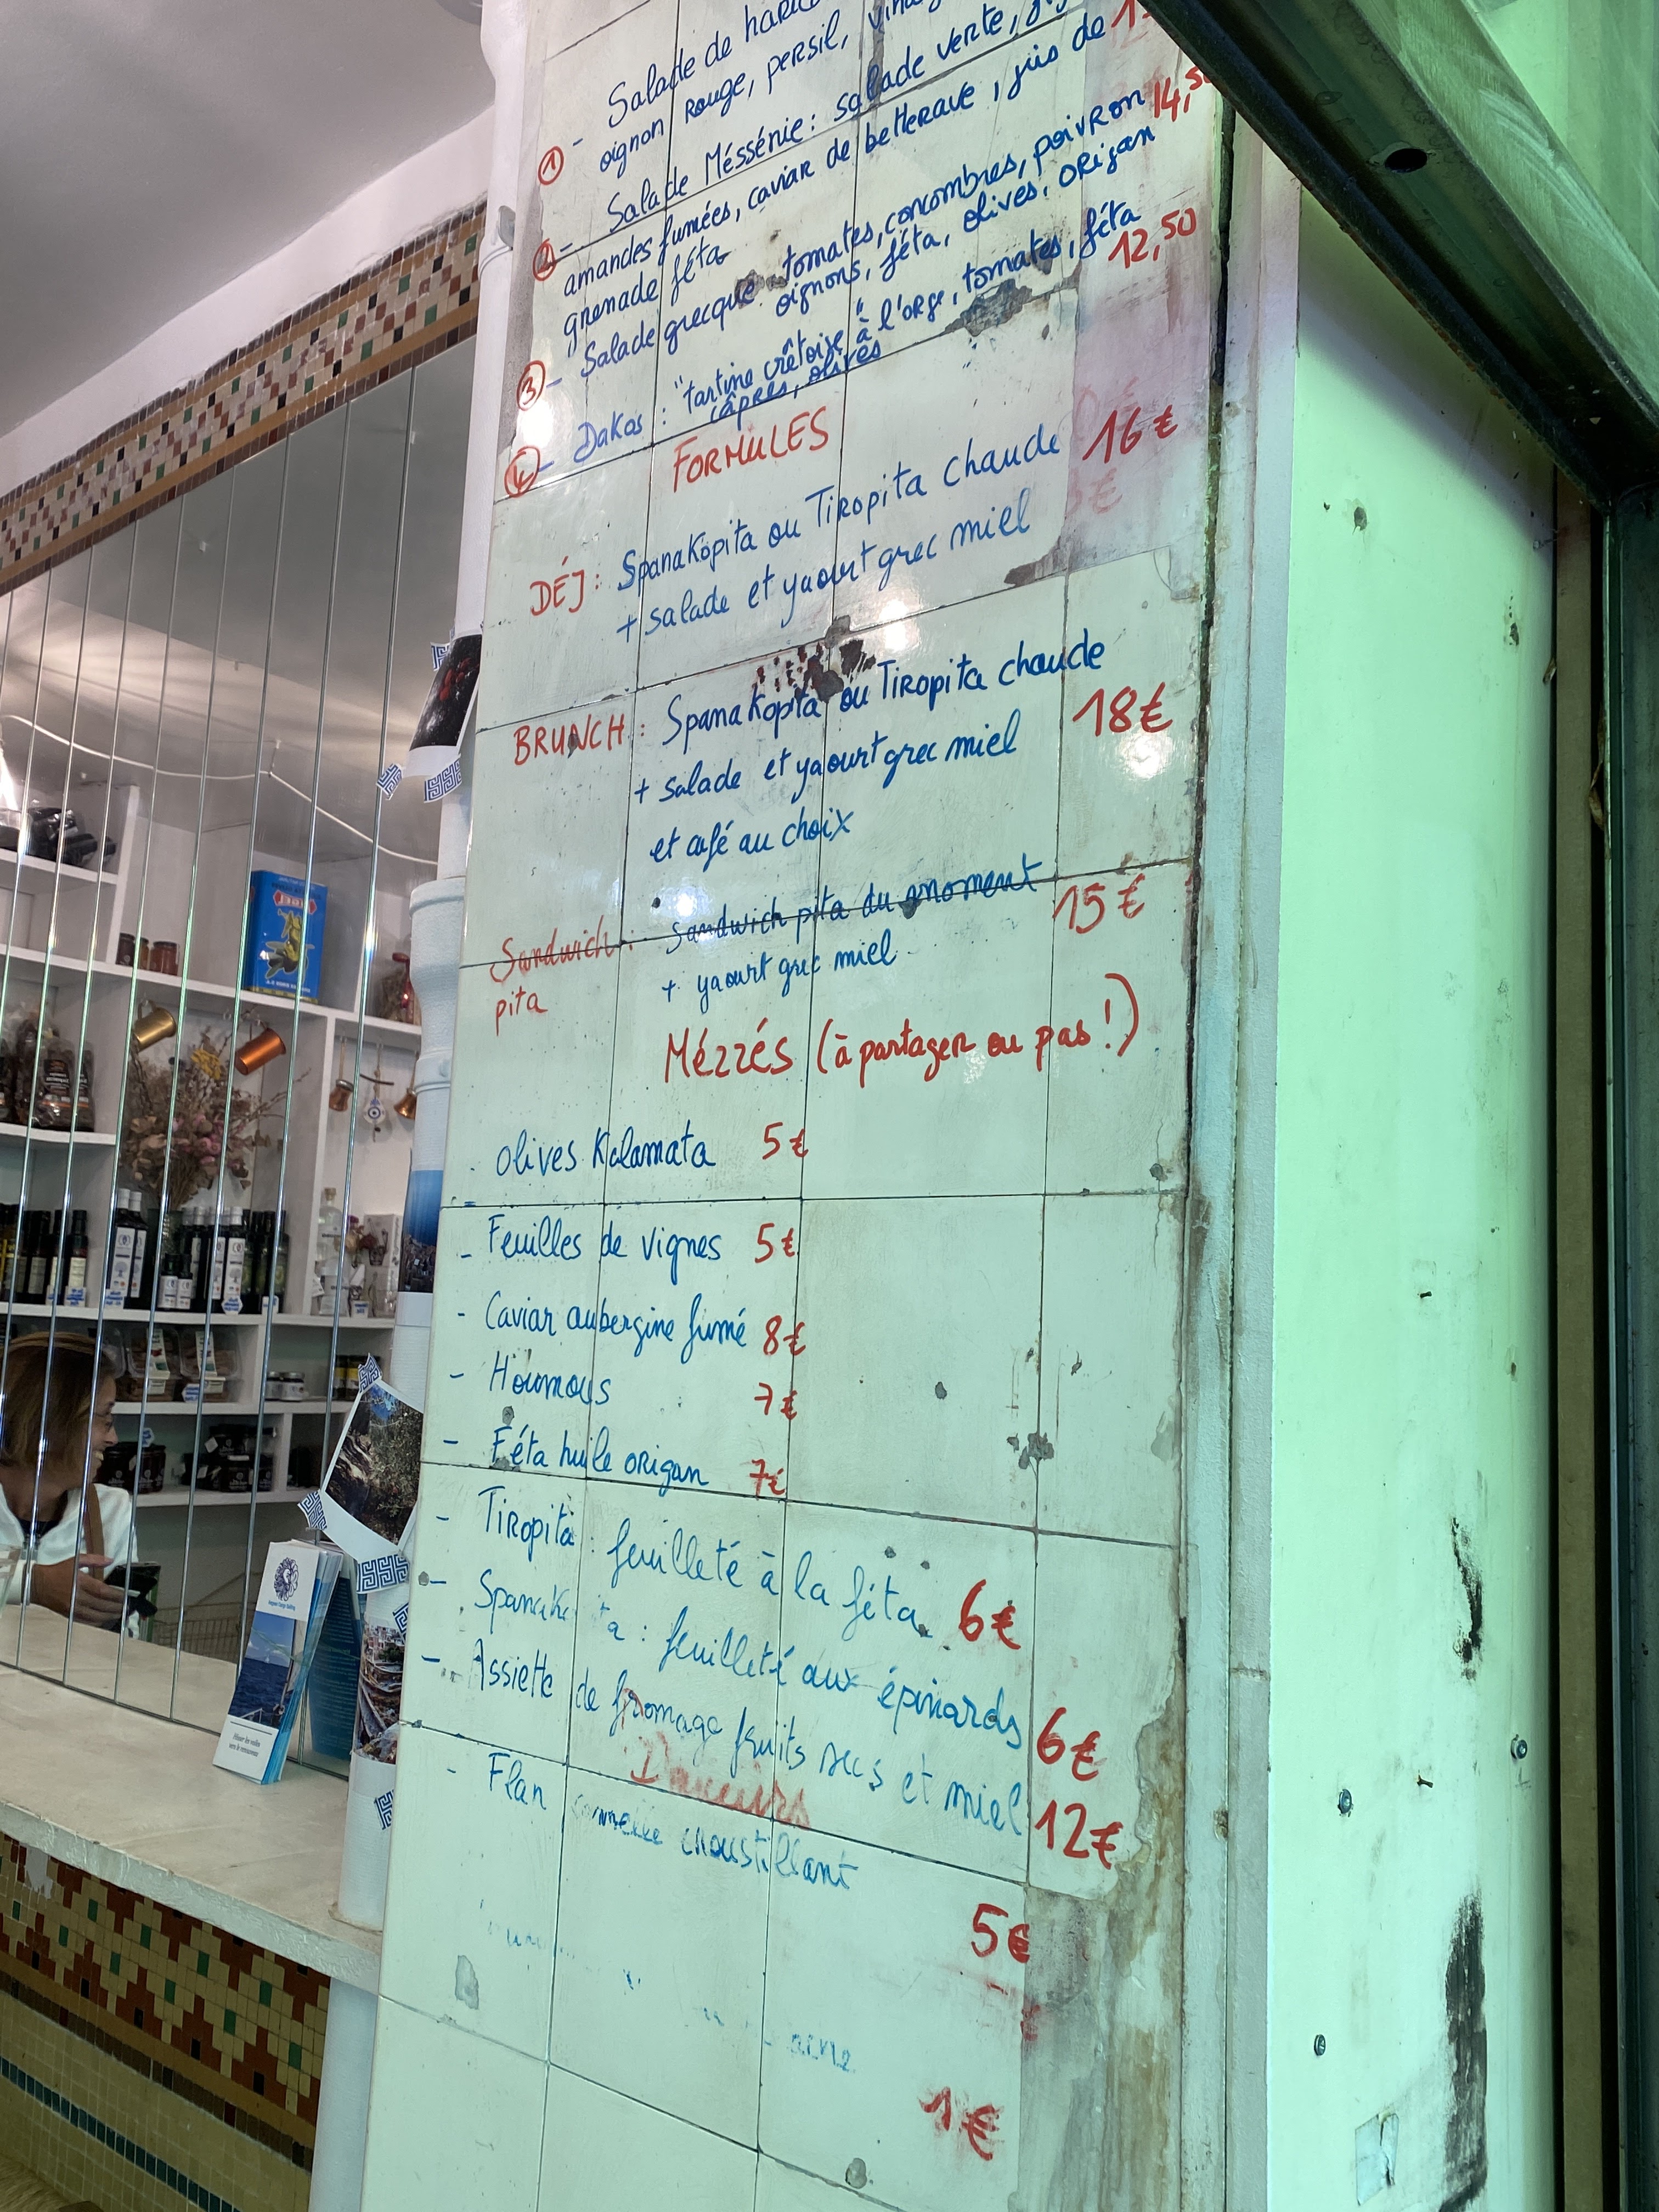 ① - Salade de
oignon rouge, persil,
② - Salade Méssénie : salade verte,
amandes fumées, caviar de betterave, jus de
grenade féta
③ - Salade grecque : tomates, concombres, poivron 14,50
oignons, féta, olives, origan
④ - Dakos : "tartine crêtoise" à l'orge, tomates, féta 12,50
câpres, olives
FORMULES
DÉJ : Spanakopita ou Tiropita chaude 16€
+ salade et yaourt grec miel
BRUNCH : Spanakopita ou Tiropita chaude
+ salade et yaourt grec miel 18€
et café au choix
Sandwich : Sandwich pita du moment 15€
pita + yaourt grec miel
Mézzés (à partager ou pas !)
- olives Kalamata 5€
- Feuilles de vignes 5€
- Caviar aubergine fumé 8€
- Houmous 7€
- Féta huile origan 7€
- Tiropita : feuilleté à la féta 6€
- Spanak ta : feuilleté aux épinards 6€
- Assiette de fromage fruits secs et miel 12€
Douceurs
- Flan cannelle croustillant
5€
1€